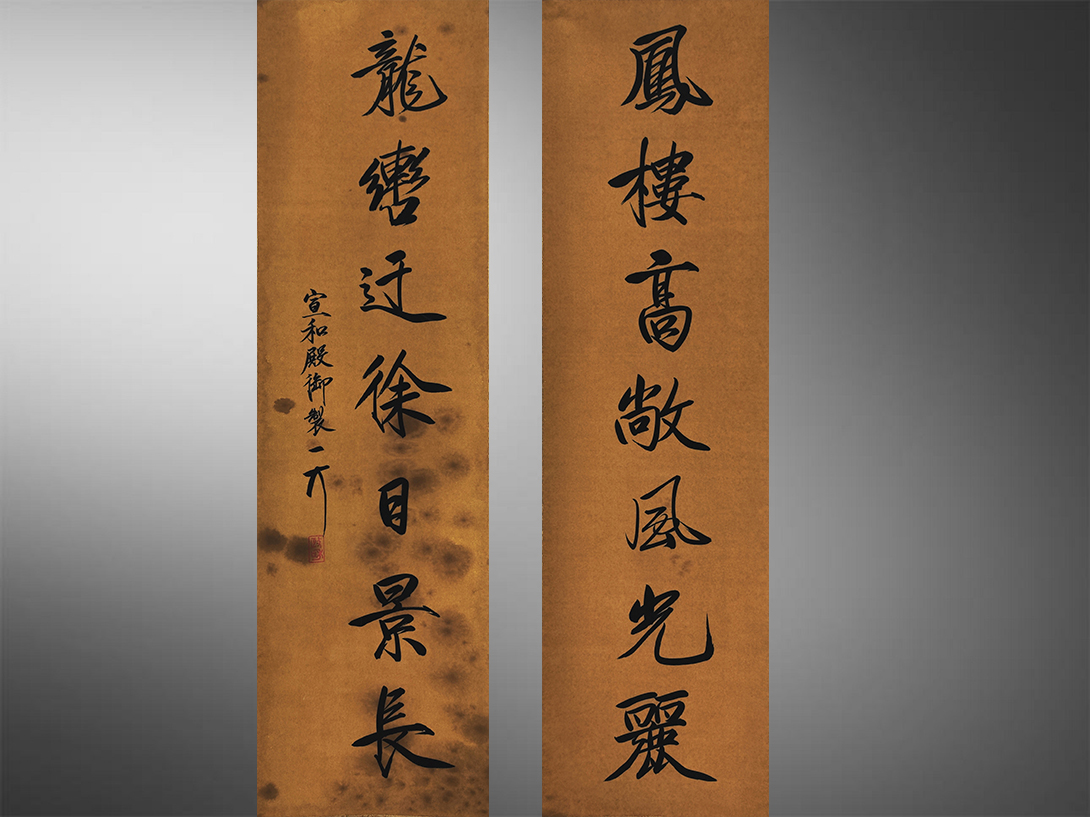 鳳樓髙敞風光麗
龍轡迂徐日景長
宣和殿御製